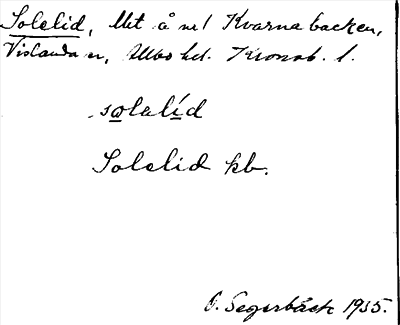 Solelid, lht å nr 1 Kvarnabacken,
Vislanda sn, Allbo hd. Kronob. l.
sωlalíd
Solelid kb.
O. Segerbäck 1935.